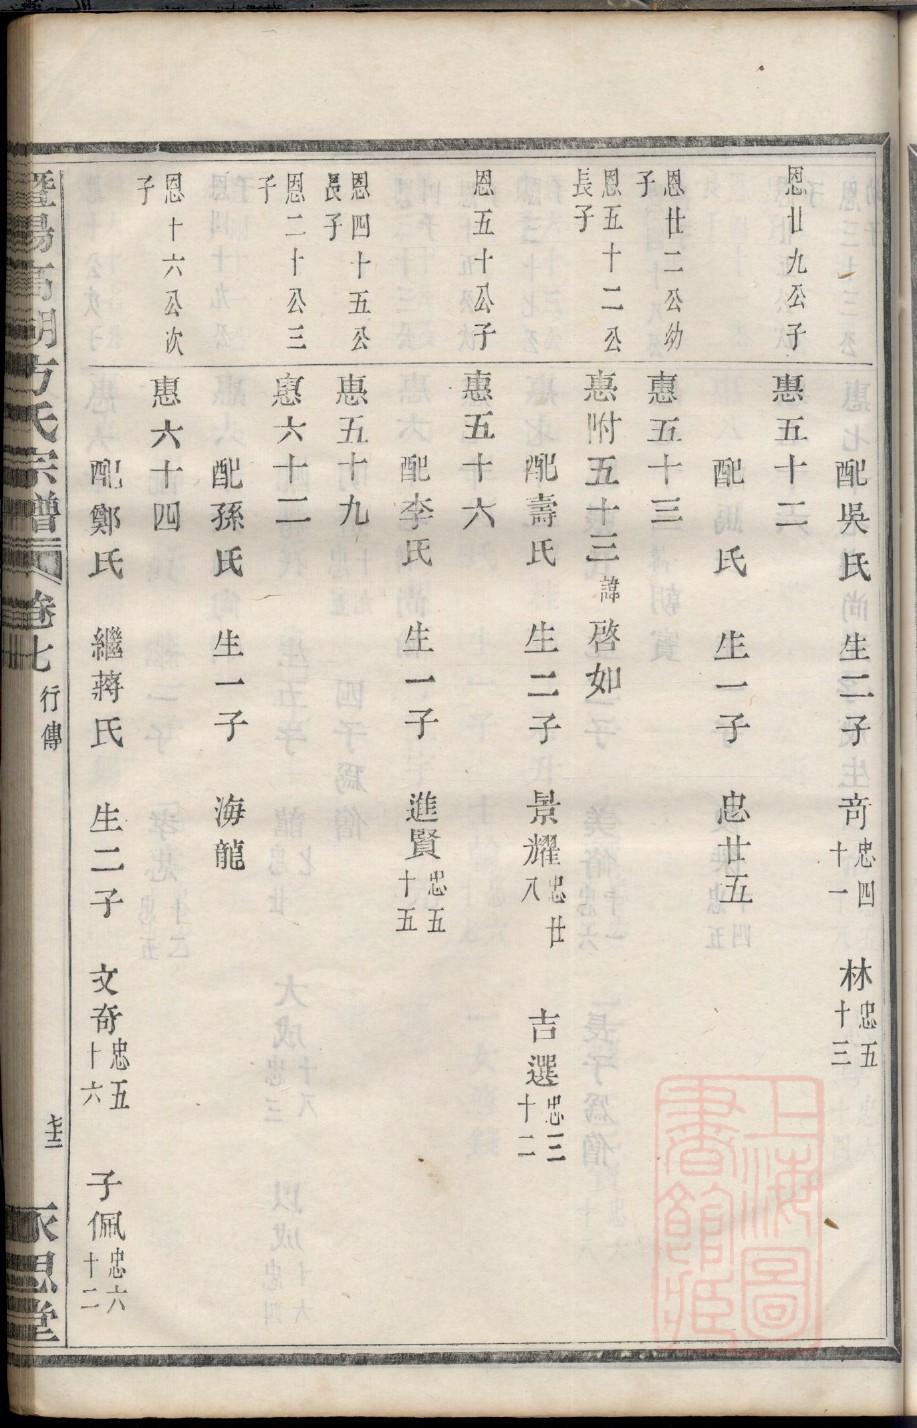 配吳氏 生二子 竒忠四十一 林忠五十三
恩廿九公子 惠五十二
配 氏 生一子 忠廿五
恩廿二公幼子 惠五十三
恩五十二公長子 惠附五十三諱啓如
配壽氏 生二子 景耀忠廿八 吉選忠三十二
恩五十公子 惠五十六
配李氏 生一子 進賢忠五十五
恩四十五公長子 惠五十九
配孫氏 生一子 海龍
恩二十公三子 惠六十二
恩十六公次子 惠六十四
配鄭氏 繼蔣氏 生二子 文奇忠五十六 子佩忠六十二
暨陽高湖方氏宗譜 卷七 行傳 永思堂
上海圖書館藏